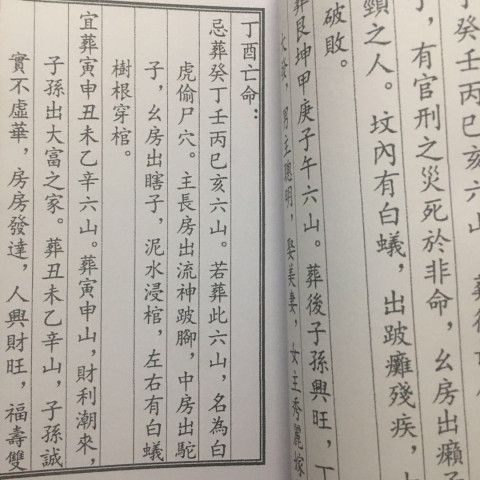 癸壬丙巳亥六山
，有官刑之災死於非命，幺房出癩子
頸之人。坟內有白蟻，出跛癱殘疾，
破敗。
葬艮坤甲庚子午六山。葬後子孫興旺，丁
發，男主聰明，娶美妻，女主秀麗嫁
丁酉亡命：
忌葬癸丁壬丙巳亥六山。若葬此六山，名為白
虎偷尸穴。主長房出流神跛腳，中房出駝
子，幺房出瞎子，泥水浸棺，左右有白蟻
樹根穿棺。
宜葬寅申丑未乙辛六山。葬寅申山，財利潮來，
子孫出大富之家。葬丑未乙辛山，子孫誠
實不虛華，房房發達，人興財旺，福壽雙